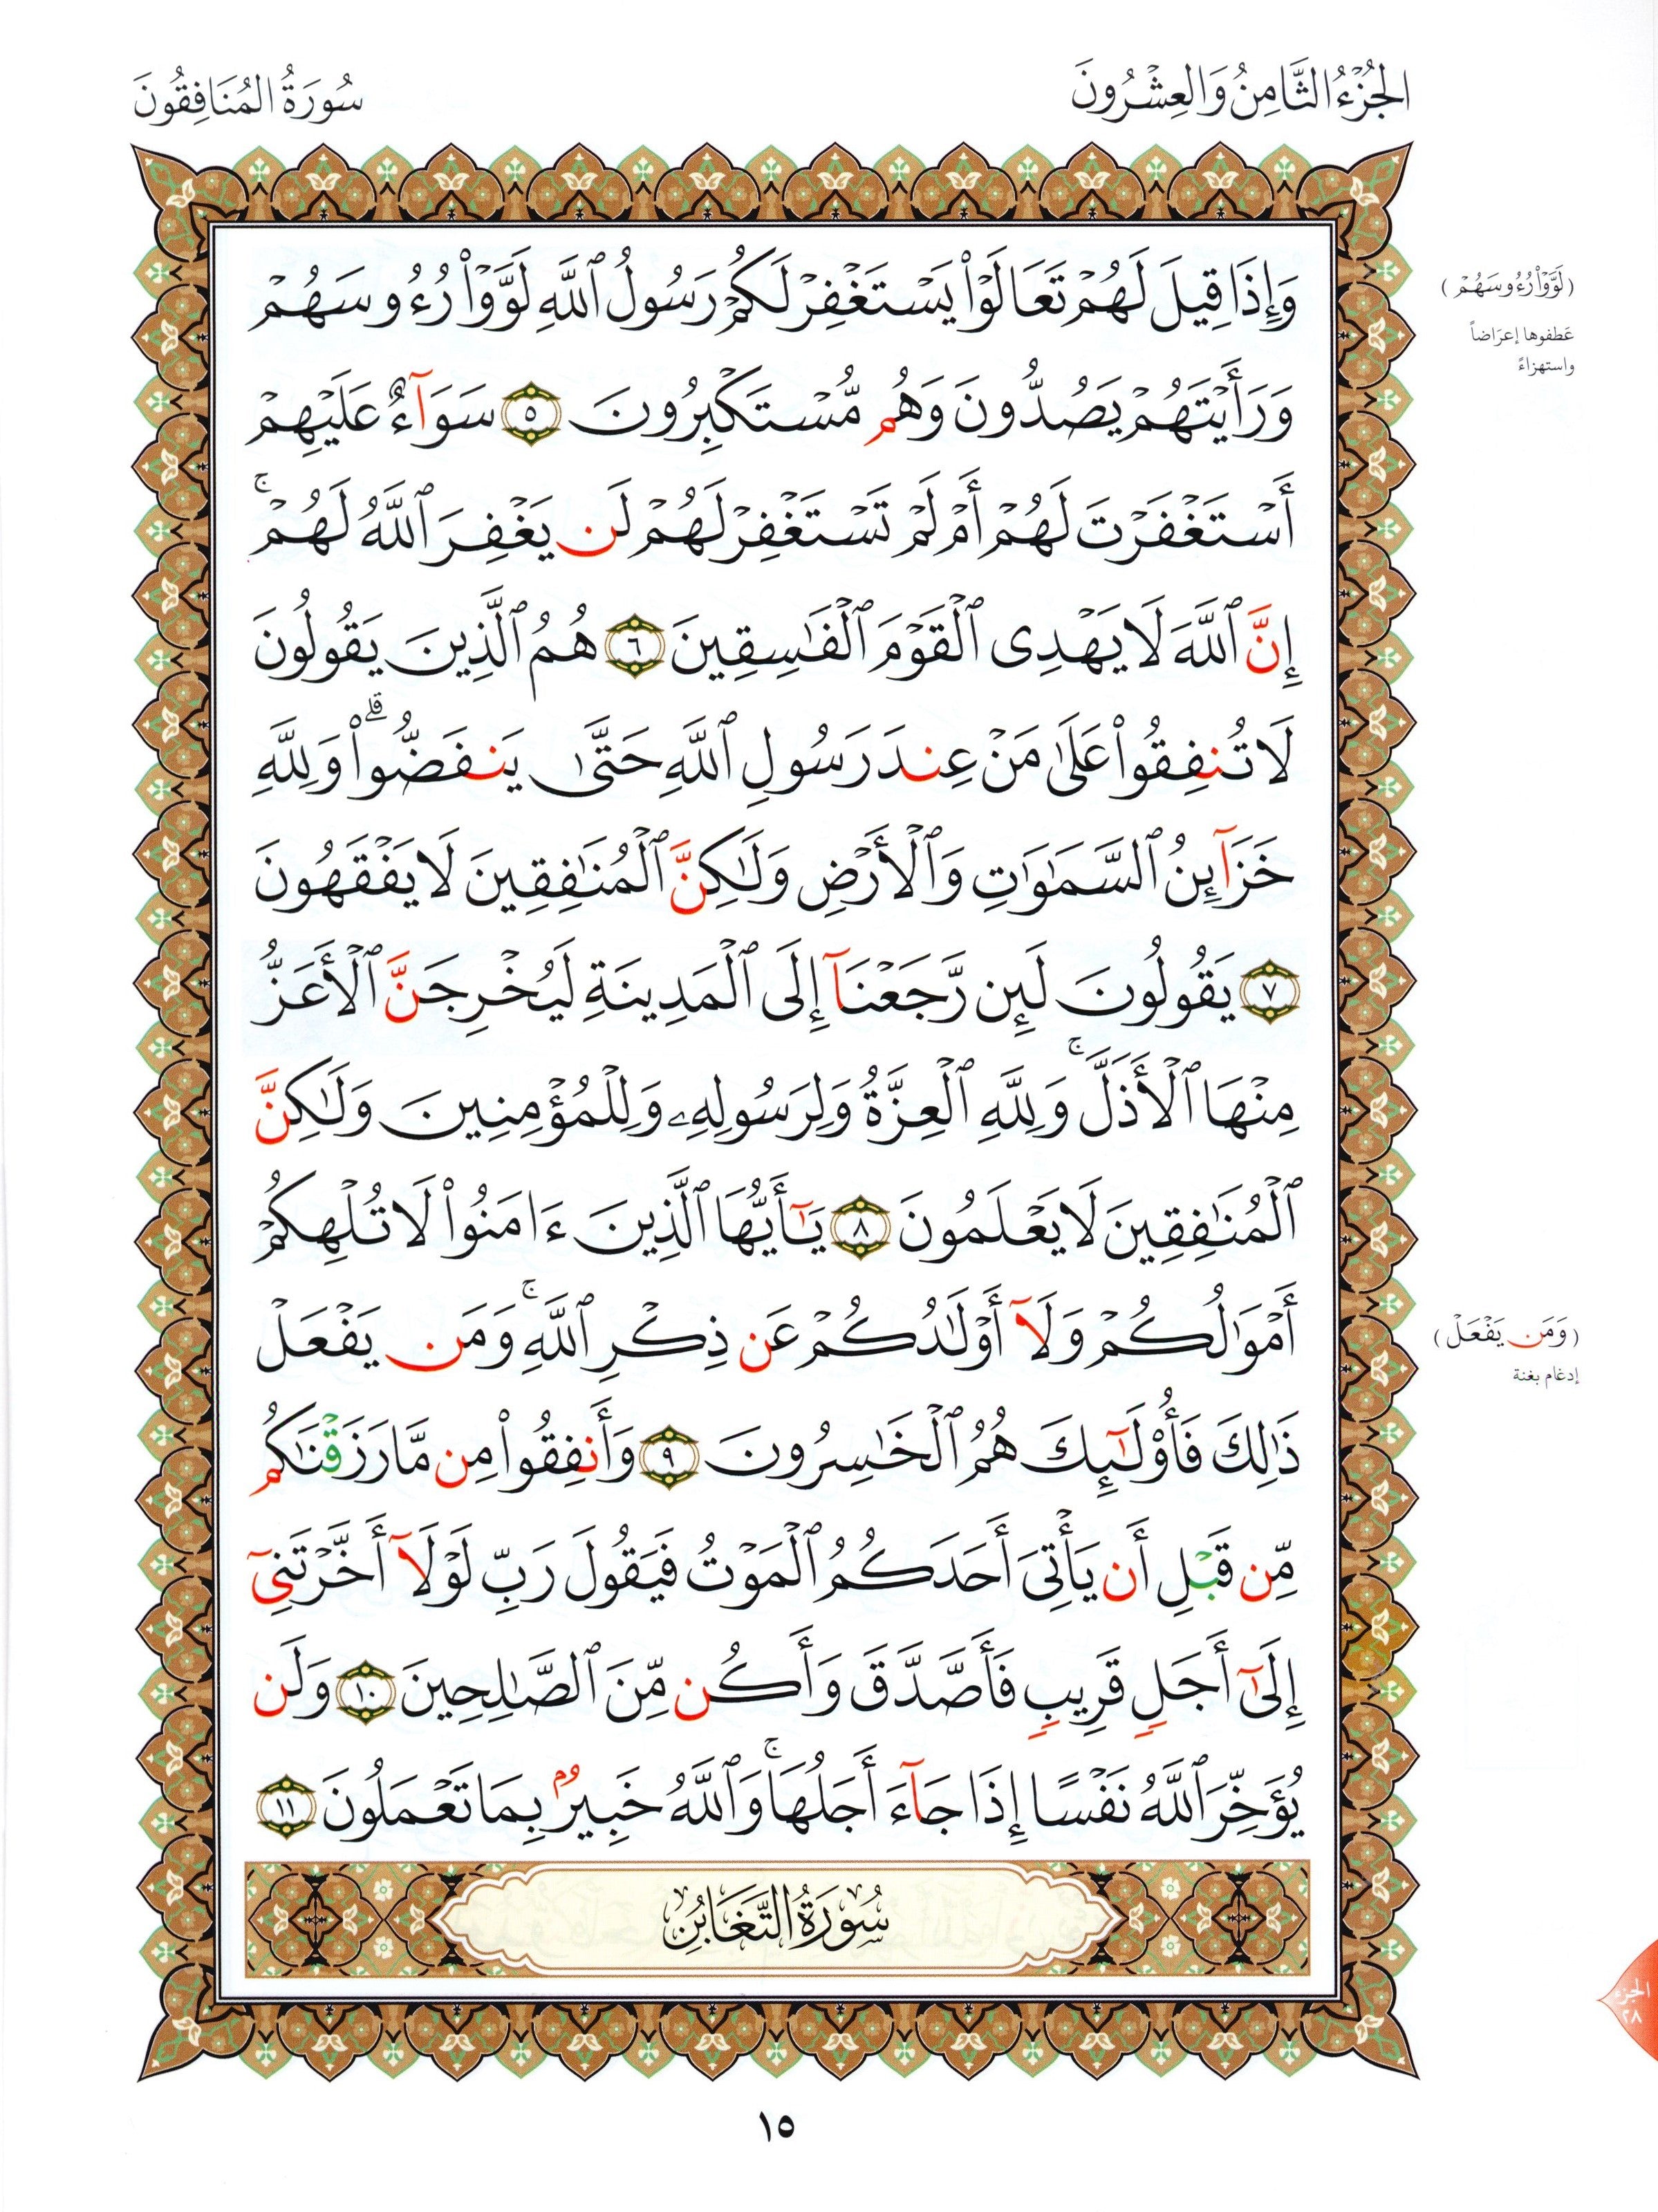 الجُزْءُ الثَّامِنُ وَالعِشْرُونَ
سُورَةُ المُنَافِقُونَ
وَإِذَا قِيلَ لَهُمْ تَعَالَوْا۟ يَسْتَغْفِرْ لَكُمْ رَسُولُ ٱللَّهِ لَوَّوْا۟ رُءُوسَهُمْ
وَرَأَيْتَهُمْ يَصُدُّونَ وَهُم مُّسْتَكْبِرُونَ ٥ سَوَآءٌ عَلَيْهِمْ
أَسْتَغْفَرْتَ لَهُمْ أَمْ لَمْ تَسْتَغْفِرْ لَهُمْ لَن يَغْفِرَ ٱللَّهُ لَهُمْ ۚ
إِنَّ ٱللَّهَ لَا يَهْدِى ٱلْقَوْمَ ٱلْفَـٰسِقِينَ ٦ هُمُ ٱلَّذِينَ يَقُولُونَ
لَا تُنفِقُوا۟ عَلَىٰ مَنْ عِندَ رَسُولِ ٱللَّهِ حَتَّىٰ يَنفَضُّوا۟ ۗ وَلِلَّهِ
خَزَآئِنُ ٱلسَّمَـٰوَٰتِ وَٱلْأَرْضِ وَلَـٰكِنَّ ٱلْمُنَـٰفِقِينَ لَا يَفْقَهُونَ
٧ يَقُولُونَ لَئِن رَّجَعْنَآ إِلَى ٱلْمَدِينَةِ لَيُخْرِجَنَّ ٱلْأَعَزُّ
مِنْهَا ٱلْأَذَلَّ ۚ وَلِلَّهِ ٱلْعِزَّةُ وَلِرَسُولِهِۦ وَلِلْمُؤْمِنِينَ وَلَـٰكِنَّ
ٱلْمُنَـٰفِقِينَ لَا يَعْلَمُونَ ٨ يَـٰٓأَيُّهَا ٱلَّذِينَ ءَامَنُوا۟ لَا تُلْهِكُمْ
أَمْوَٰلُكُمْ وَلَآ أَوْلَـٰدُكُمْ عَن ذِكْرِ ٱللَّهِ ۚ وَمَن يَفْعَلْ
ذَٰلِكَ فَأُو۟لَـٰٓئِكَ هُمُ ٱلْخَـٰسِرُونَ ٩ وَأَنفِقُوا۟ مِن مَّا رَزَقْنَـٰكُم
مِّن قَبْلِ أَن يَأْتِىَ أَحَدَكُمُ ٱلْمَوْتُ فَيَقُولَ رَبِّ لَوْلَآ أَخَّرْتَنِىٓ
إِلَىٰٓ أَجَلٍ قَرِيبٍ فَأَصَّدَّقَ وَأَكُن مِّنَ ٱلصَّـٰلِحِينَ ١٠ وَلَن
يُؤَخِّرَ ٱللَّهُ نَفْسًا إِذَا جَآءَ أَجَلُهَا ۚ وَٱللَّهُ خَبِيرٌۢ بِمَا تَعْمَلُونَ ١١
سُورَةُ التَّغَابُنِ
(لَوَّوْا۟ رُءُوسَهُمْ)
عَطفوها إعرَاضاً
واستهزاءً
(وَمَن يَفْعَلْ)
إدغام بغنة
الجزء
٢٨
١٥